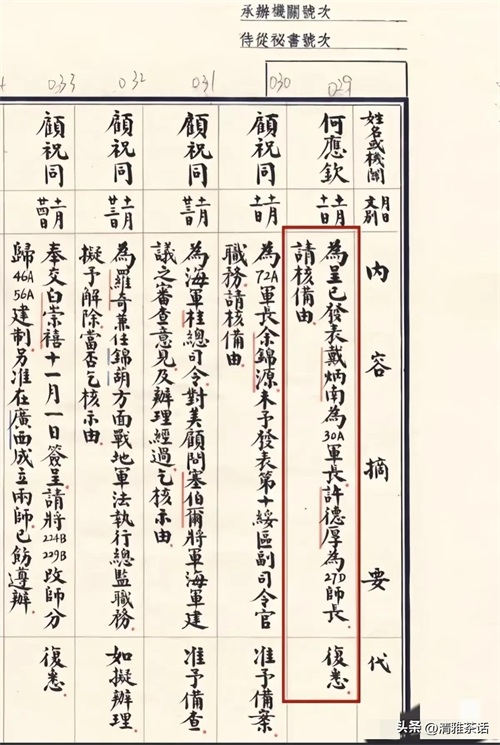 承辦機關號次
侍從祕書號次
029
030
031
032
033
姓名或機關
月日
文別
內容摘要
代
何應欽
十一月
為呈已發表戴炳南為30A軍長許德厚為27D師長
請核備由
復悉
顧祝同
十一月
為72A軍長余錦源未予發表第十綏區副司令官
職務請核備由
准予備案
顧祝同
十一月
廿三日
為海軍桂總司令對美顧問塞伯爾將軍海軍建
議之審查意見及辦理經過乞核示由
准予備查
顧祝同
十一月
廿三日
為羅奇兼任錦葫方面戰地軍法執行總監職務
擬予解除當否乞核示由
如擬辦理
顧祝同
十一月
廿四日
奉交白崇禧十一月一日簽呈請將224B 229B改師分
歸46A 56A建制另准在廣西成立兩師已飭遵辦
復悉
头条@清雅茶话